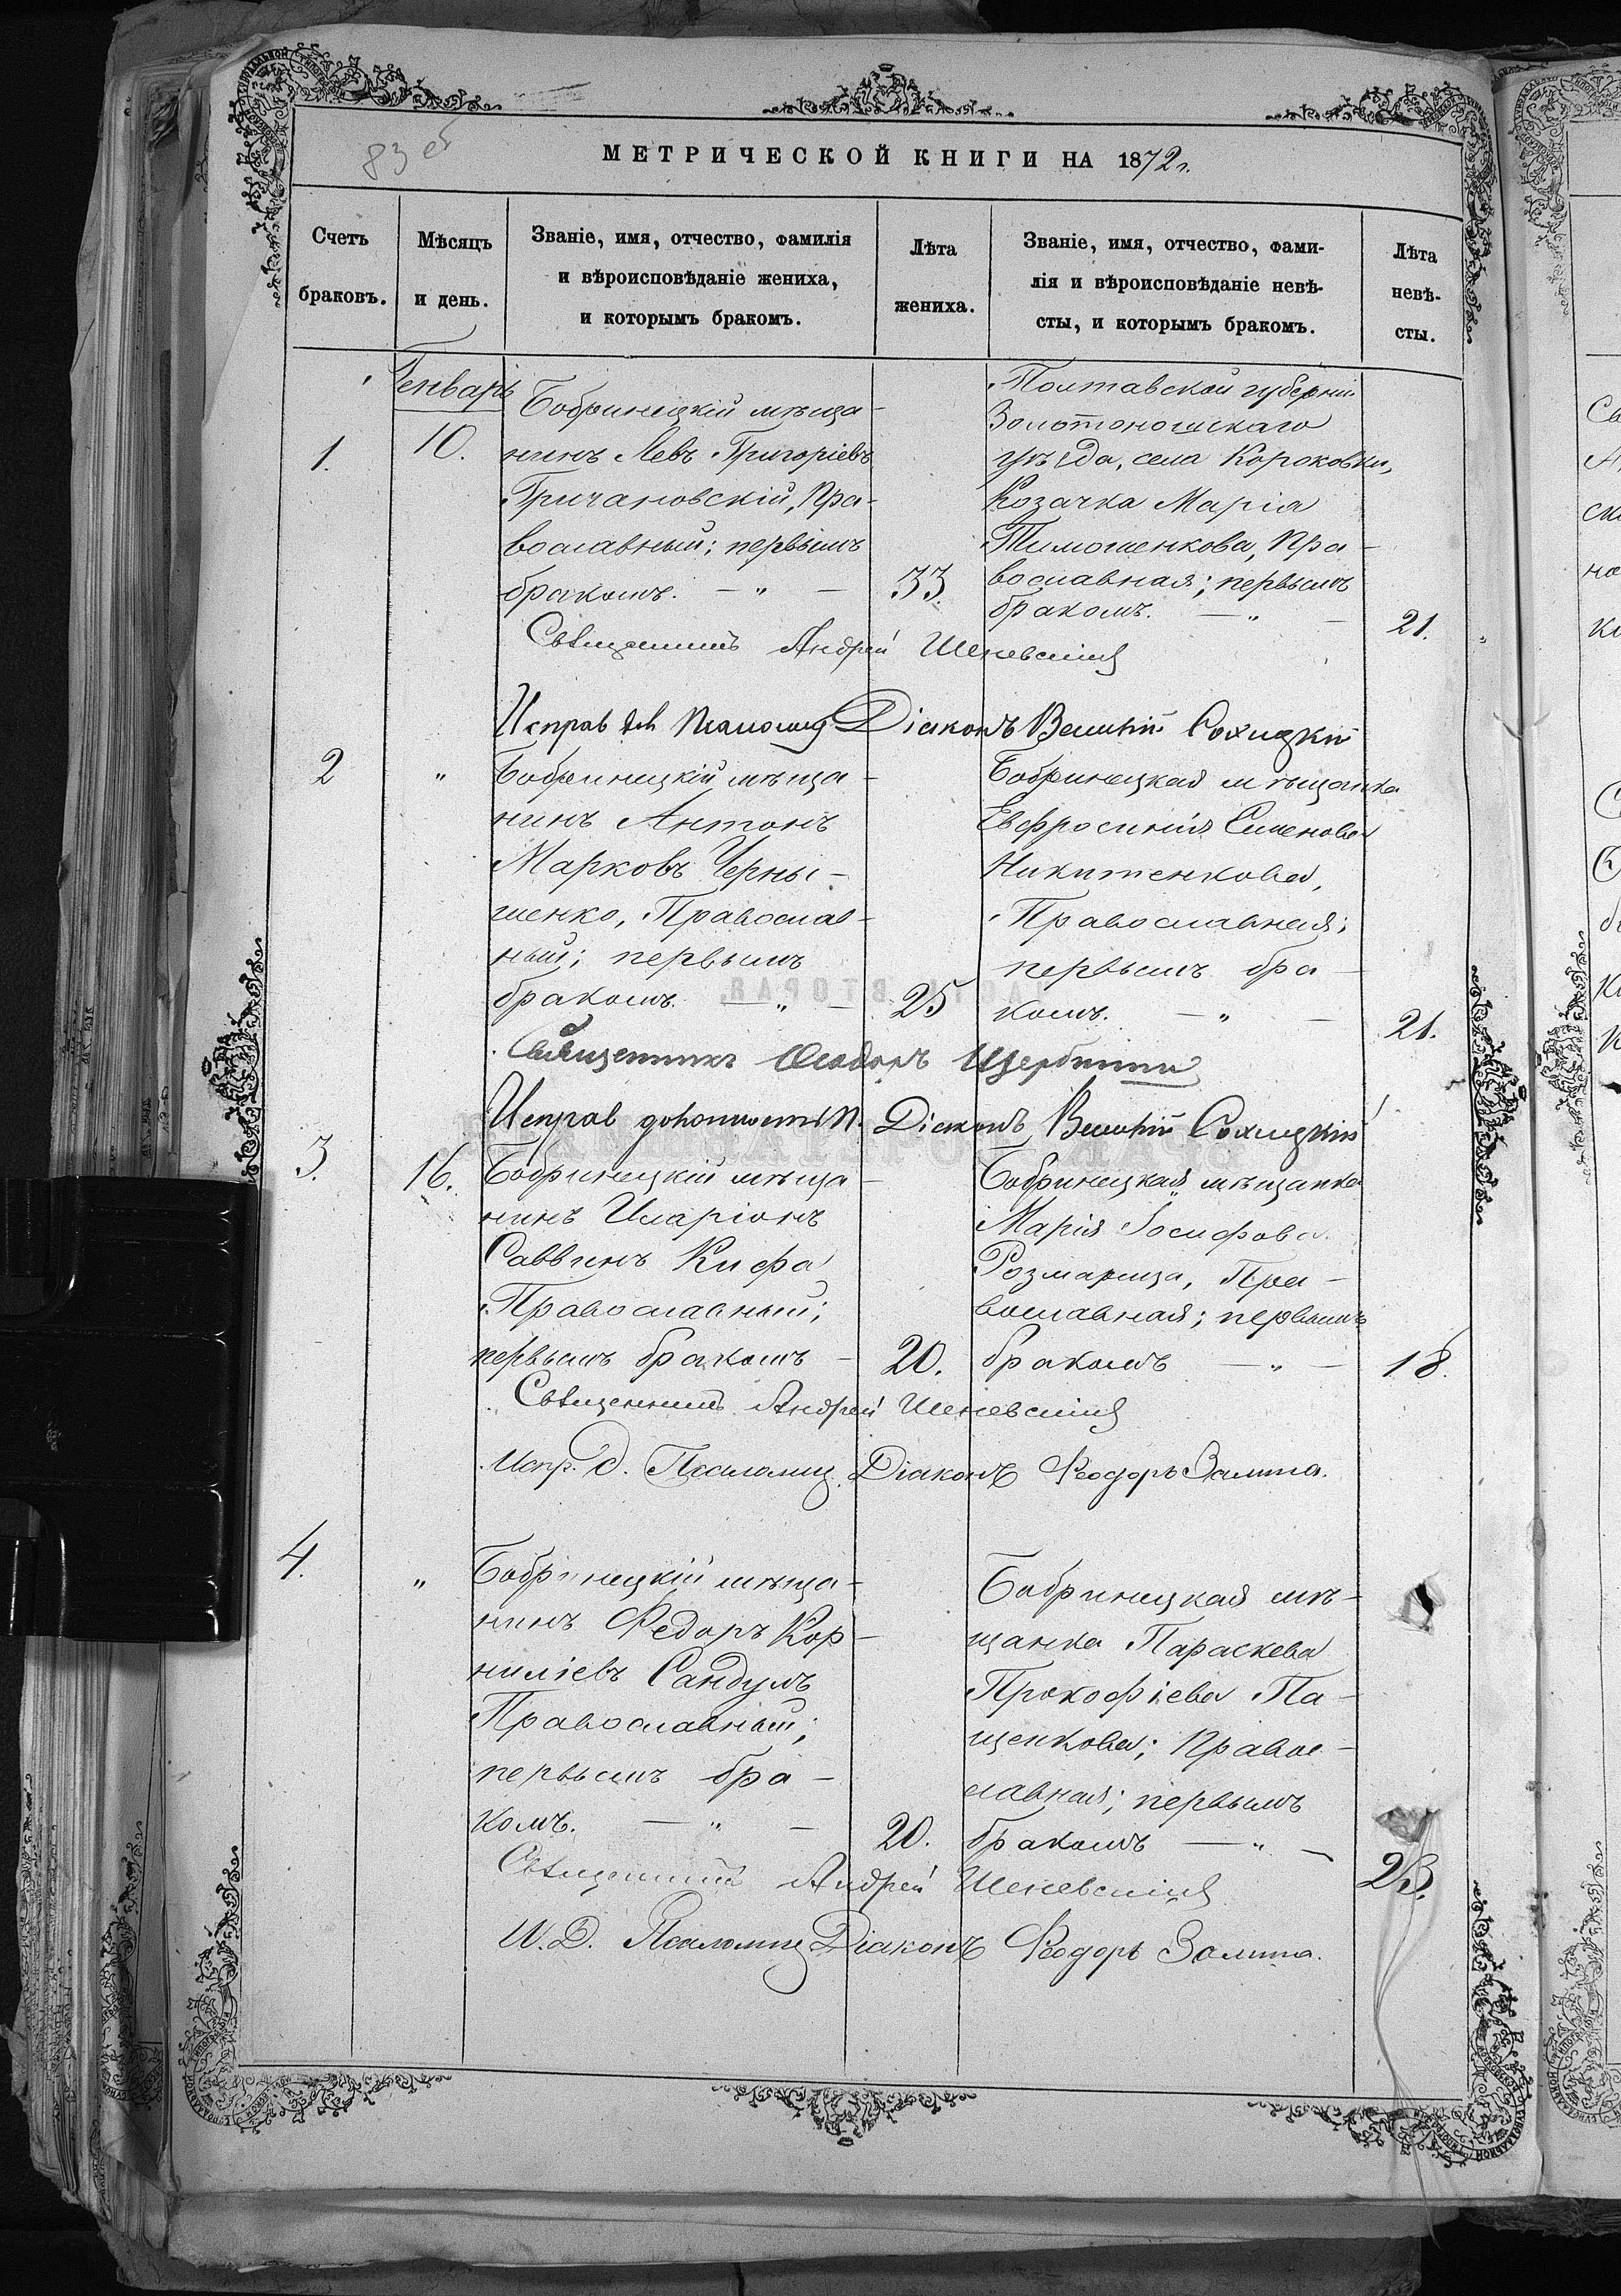 83 об
МЕТРИЧЕСКОЙ КНИГИ НА 1872 г.
Счетъ
браковъ.
Мѣсяцъ
и день.
Званіе, имя, отчество, фамилія
и вѣроисповѣданіе жениха,
и которымъ бракомъ.
Лѣта
жениха.
Званіе, имя, отчество, фами-
лія и вѣроисповѣданіе невѣ-
сты, и которымъ бракомъ.
Лѣта
невѣ-
сты.
Генварь
1.
10.
Бобринецкій мѣща-
нинъ Левъ Григоріевъ
Гричановскій, Пра-
вославный; первымъ
бракомъ. — „ —
33.
Полтавской губерніи
Золотоношскаго
уѣзда, села Короковки,
Козачка Марія
Тимошенкова, Пра-
вославная; первымъ
бракомъ. — „ —
21.
Священникъ Андрей
Исправ дол Псаломщ Діаконъ Сохицкій
2
„
Бобринецкій мѣща-
нинъ Антонъ
Марковъ Черны-
шенко, Православ-
ный; первымъ
бракомъ. — „ —
25
Бобринецкая мѣщанка
Евфросинія Сименова
Никитенкова,
Православная;
первымъ бра-
комъ. — „ —
21.
Священникъ Ѳеодоръ
Исправ должность П. Діаконъ Сохицкій
3.
16.
Бобринецкій мѣща-
нинъ Иларіонъ
Саввинъ Кифа
Православный;
первымъ бракомъ —
20.
Бобринецкая мѣщанка
Марія Іосифова
Розмарица, Пра-
вославная; первымъ
бракомъ — „ —
18.
Священникъ Андрей
Испр. д. Псаломщ. Діаконъ Ѳеодоръ
4.
„
Бобринецкій мѣща-
нинъ Федоръ Кор-
ниліевъ Сандулъ
Православный;
первымъ бра-
комъ. — „ —
20.
Бобринецкая мѣ-
щанка Параскева
Прокофіева Па-
щенкова; Правос-
лавная; первымъ
бракомъ — „ —
23.
Священникъ Андрей
И. Д. Псаломщ Діаконъ Ѳеодоръ